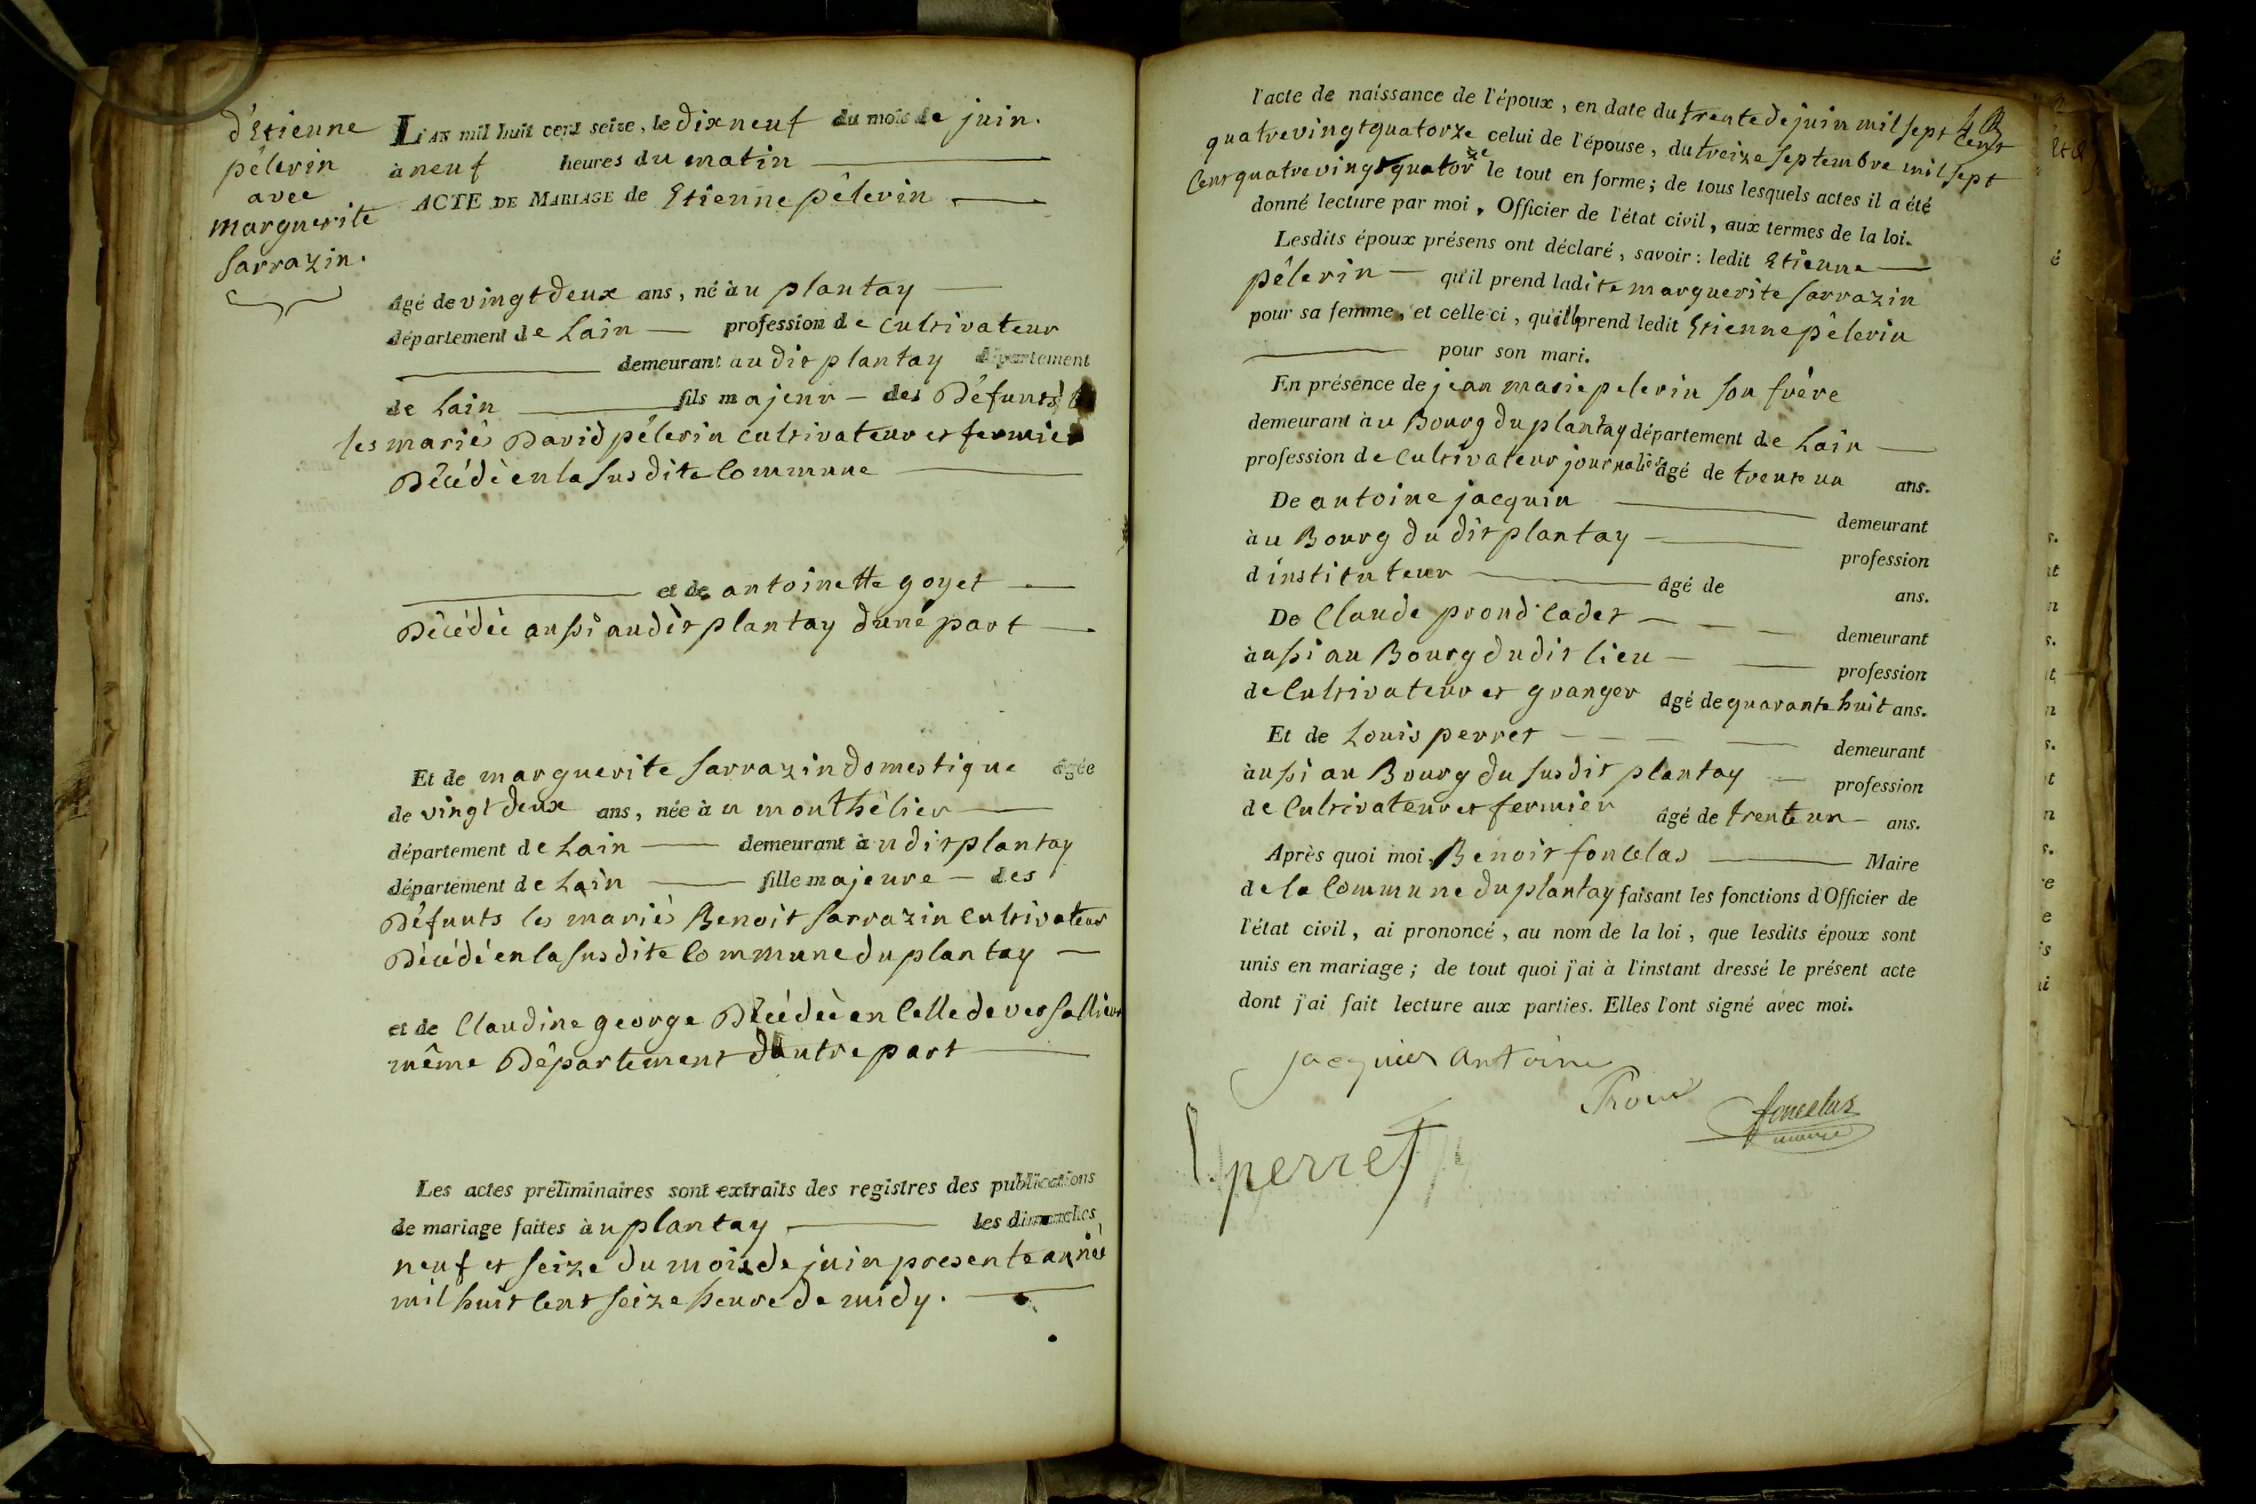 d'Etienne
pêlerin
avec
marguerite
Sarrazin.
L'AN mil huit cent seize, le dix neuf du mois de juin.
à neuf heures du matin
ACTE DE MARIAGE de Etienne pêlerin
âgé de vingt deux ans, né àu plantay
département de Lain profession de cultivateur
demeurant au dit plantay département
de Lain fils majeur des Défunts
les mariés David pélerin cultivateur et fermier
Décédé en la susdite Commune
et de antoinette goyet
Décédée aussi audit plantay d'une part
Et de marguerite Sarrazin domestique âgée
de vingt deux ans, née àu monthêlier
département de Lain demeurant àu dit plantay
département de Lain fille majeure des
Défunts les mariés Benoit Sarrazin Cultivateur
Décédé en la susdite Commune du plantay
et de Claudine george Décédée en Celle de versallieu
même Département d'autre part
Les actes préliminaires sont extraits des registres des publications
de mariage faites àu plantay les dimanches
neuf et seize du mois de juin presente année
mil huit cent seize heure de midy.
l'acte de naissance de l'époux, en date du trente de juin mil sept Cent
quatrevingt quatorze celui de l'épouse, du treize septembre mil sept
Cent quatrevingt quatorze le tout en forme; de tous lesquels actes il a été
donné lecture par moi, Officier de l'état civil, aux termes de la loi.
Lesdits époux présens ont déclaré, savoir: ledit Etienne
pêlerin qu'il prend ladite marguerite Sarrazin
pour sa femme, et celle-ci, qu'ill prend ledit Etienne pêlerin
pour son mari.
En présence de jean marie pelerin son frère
demeurant àu Bourg du plantay département de Lain
profession de cultivateur journalier âgé de trente un ans.
De antoine jacquin demeurant
àu Bourg du dit plantay profession
d instituteur âgé de ans.
De Claude prond Cadet demeurant
àussi au Bourg du dit lieu profession
de Cultivateur et granger âgé de quarante huit ans.
Et de Louis perret demeurant
àussi au Bourg du susdit plantay profession
de Cultivateur et fermier âgé de trente un ans.
Après quoi moi, Benoit fonclas Maire
de la Commune du plantay faisant les fonctions d'Officier de
l'état civil, ai prononcé, au nom de la loi, que lesdits époux sont
unis en mariage; de tout quoi j'ai à l'instant dressé le présent acte
dont j'ai fait lecture aux parties. Elles l'ont signé avec moi.
jacquin antoine
fonclas
maire
perret